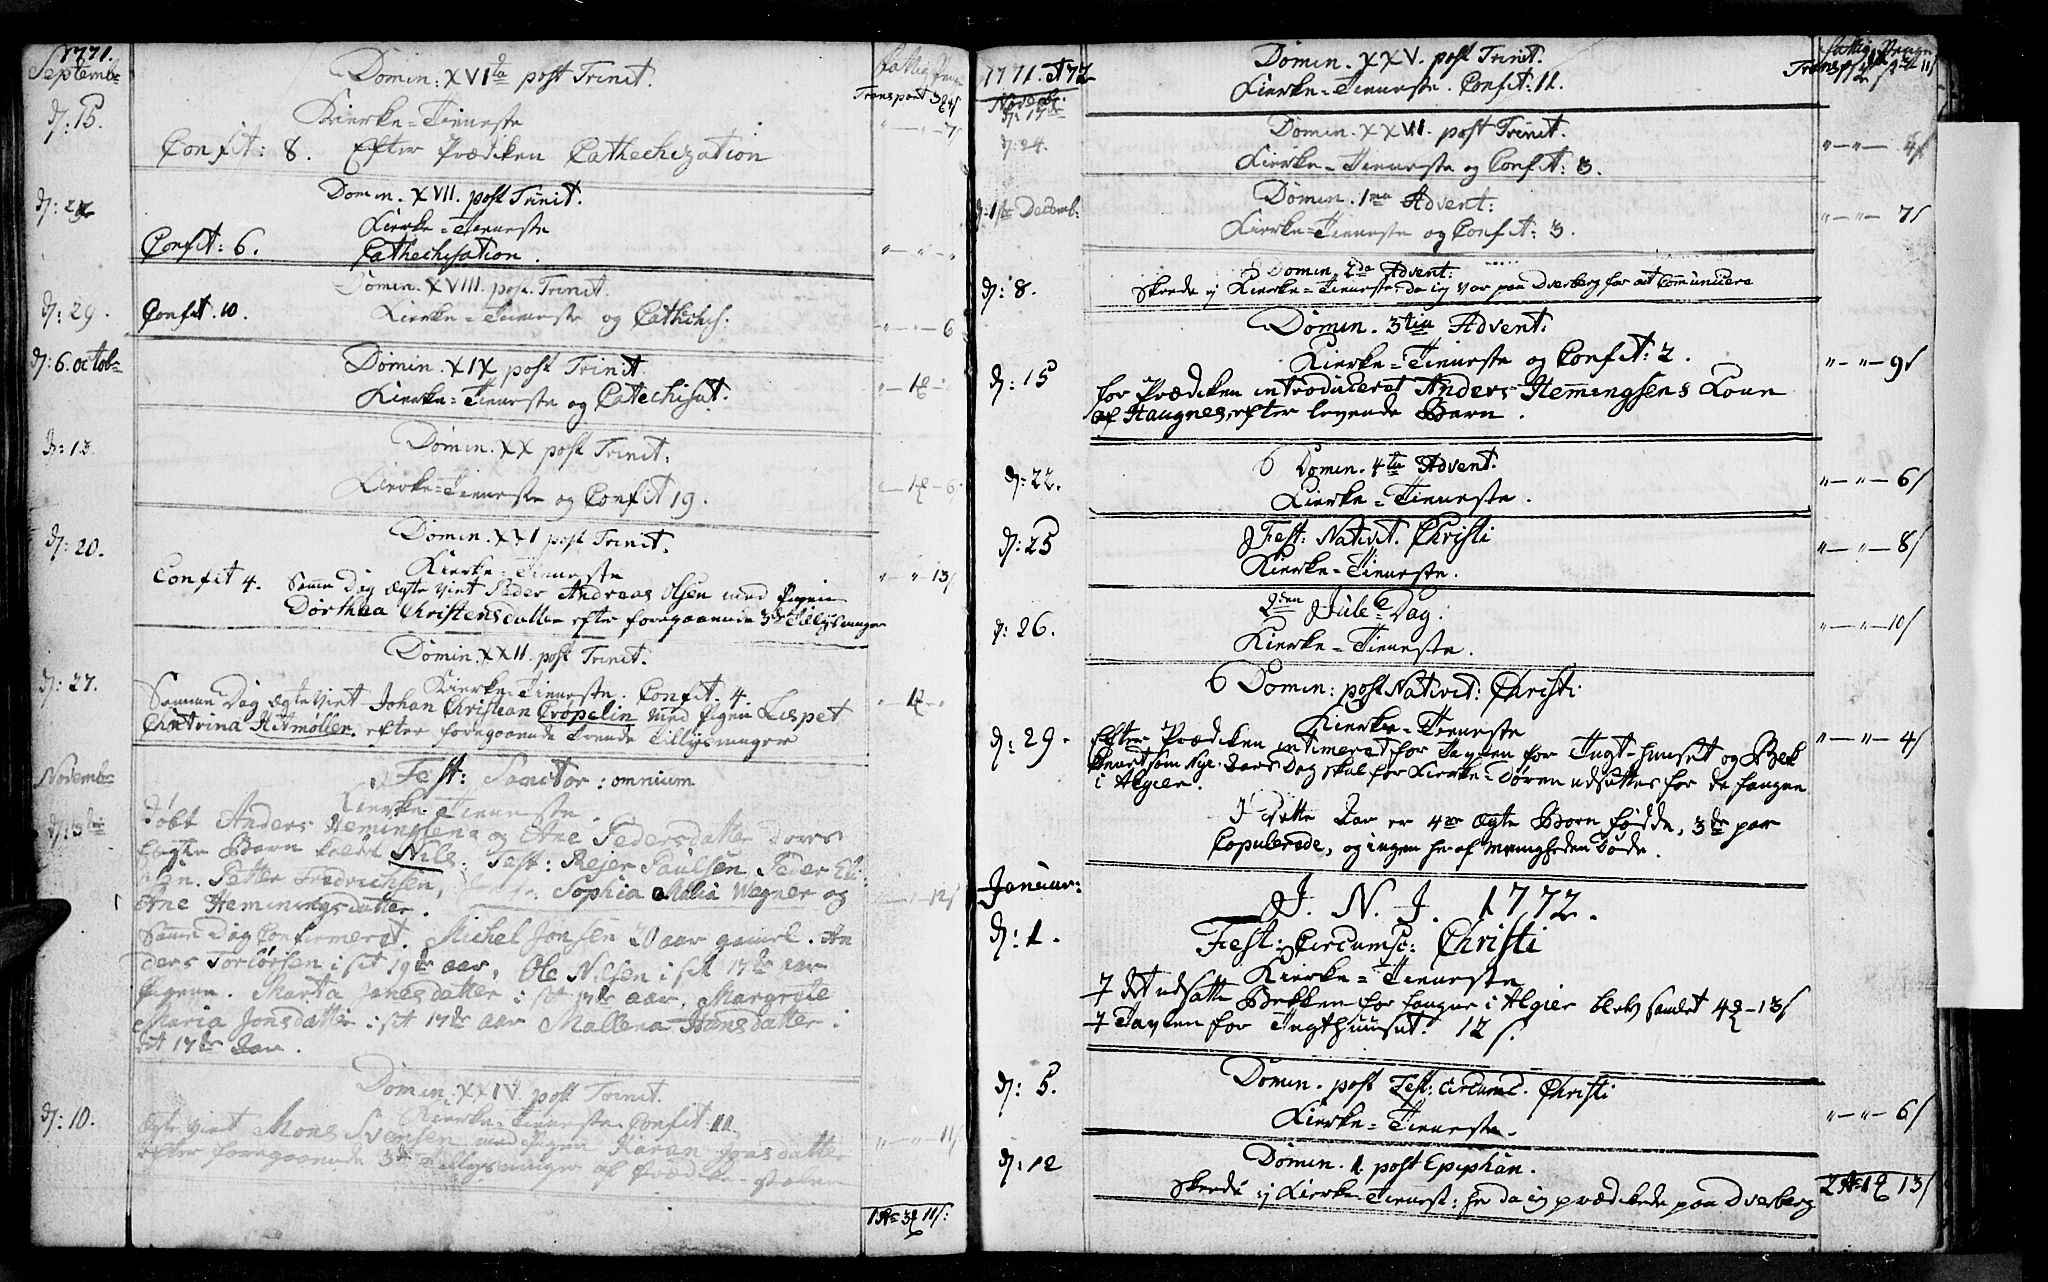 1771.
Septembr
Domin: XVIta post Trinit.
Fattig Penge
Transport
d: 15.
Kierke-Tieneste
" — " — 7 s
Confit: 8. Efter Prædiken Cathechization
Domin. XVII. post Trinit.
d: 22
Kierke-Tieneste
Confit: 6. Cathechisation.
" — " — "
Domin. XVIII. post. Trinit.
d: 29. Confit. 10. Kierke-Tieneste og Cathechis:
" — " — 6
d: 6. octobr
Domin. XIX post Trinit.
Kierke-Tieneste og Catechisat.
d: 13.
Domin. XX post Trinit.
Kierke-Tieneste og Confit 19.
d: 20.
Domin. XXI post Trinit.
Kierke-Tieneste
" — " 13 s
Confit 4. Samme Dag ægte viet Peder Andreas Olsen med Pigen
Dorthea Christensdatter efter foregaaende 3de Tillysninger
Domin. XXII. post Trinit.
d: 27.
Kierke-Tieneste. Confit. 4.
Samme Dag ægteviet Johan Christian Crøpelin med Pigen Lispet
Chatrina Hitmøller. efter foregaaende Trende Tillysninger
Novembr
Fest: Sanctor: omnium
Kierke-Tieneste.
d: 3die
døbt Anders Hemingsens og Ane Pedersdatter Dovers
Ægte Barn kaldet Nils. Test: Rejer Paulsen, Peder
Petter Fredrichsen, Sophia Malia Wegner og
Ane Hemingsdatter.
" — " 12 s
Samme Dag Confirmeret. Michel Jonsen 20 aar gamel. An
ders Torlørsen i sit 19de aar, Ole Nilsen i sit 17de aar
Pigene. Marta Janesdatter i sit 17de aar. Margrete
Maria Jonsdatter i sit 17de aar Mallena Hansdatter i
sit 17de Aar.
Domin. XXIV. post Trinit.
d: 10.
Kierke-Tieneste. Confit 11
Ægte viet Mons Svensen med Pigen Karen Jonsdatter
" — " — 11 s
Efter foregaaende 3de Tillysninger af Prædike-stolen
1 Rd 3 11 s:
1771. et 72
Novembr:
d: 17de
Domin. XXV. post Trinit.
Kierke-Tieneste. Confit: 11.
Fattig Penge
d: 24.
Domin. XXVI. post Trinit.
Kierke-Tieneste og Confit: 3.
" — " — 4 s
d: 1ste Decemb:
Domin. 1ma Advent:
Kierke-Tieneste og Confit: 3.
" — " — 7 s
d: 8.
Domin. 2da Advent:
Skeede ej Kierke-Tieneste, da ieg var paa Dverberg for at Communicere
Domin. 3tia Advent:
d: 15
Kierke-Tieneste og Confit: 2.
" — " — 9 s
for Prædiken introduceret Anders Hemingsens Kone
af Haugnes, efter levende Barn.
d: 22.
Domin. 4ta Advent.
Kierke-Tieneste.
" — " — 6 s
d: 25
Fest: Nativit. Christi
Kierke-Tieneste.
" — " — 8 s
d: 26.
2den Jule-Dag.
Kierke-Tieneste.
" — " — 10 s
Domin: post Nativit: Christi
d: 29.
Kierke-Tieneste
" — " — 4 s
Efter Prædiken intimeret for Tavlen for Tugt-huuset og Bek
kenet som Nye-Aars Dag skal for Kierke-Døren udsættes for de fangne
i Algier.
I dette Aar er 4re ægte Børn fødde, 3de par
Copulerede, og ingen her af menigheden Døde.
Januar:
J. N. J. 1772.
d: 1.
Fest: Circumsc: Christi
Kierke-Tieneste
I det udsatte Bekken for fangne i Algier blev samlet 4 – 13 s
I Tavlen for Tugthuuset. 12 s.
d: 5.
Domin. post Fest: circumc. Christi
Kierke-Tieneste.
" — " — 6 s
d: 12
Domin. 1. post Epiphan.
Skeede ej Kierke-Tienest: her da ieg prædikede paa Dverberg
2 Rd 1 13 s